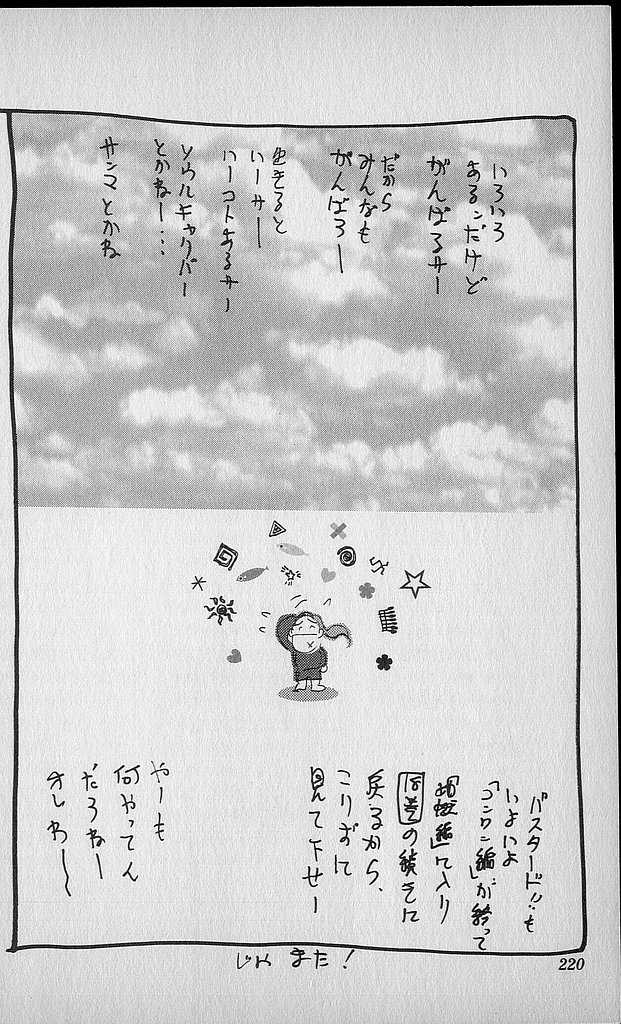 いろいろ
あるンだけど
がんばるサー
だから
みんなも
がんばろー
生きると
いーサー
いーコトあるサー
ソウルキャリバー
とかねー…
サンマとかね
バスタード!!も
いよいよ
「コンロン編」が終って
編」に入り
18巻の続きに
戻るから、
こりずに
見て下せー
やーも
何やってん
だろねー
オレわー〜
じゃ また!
220